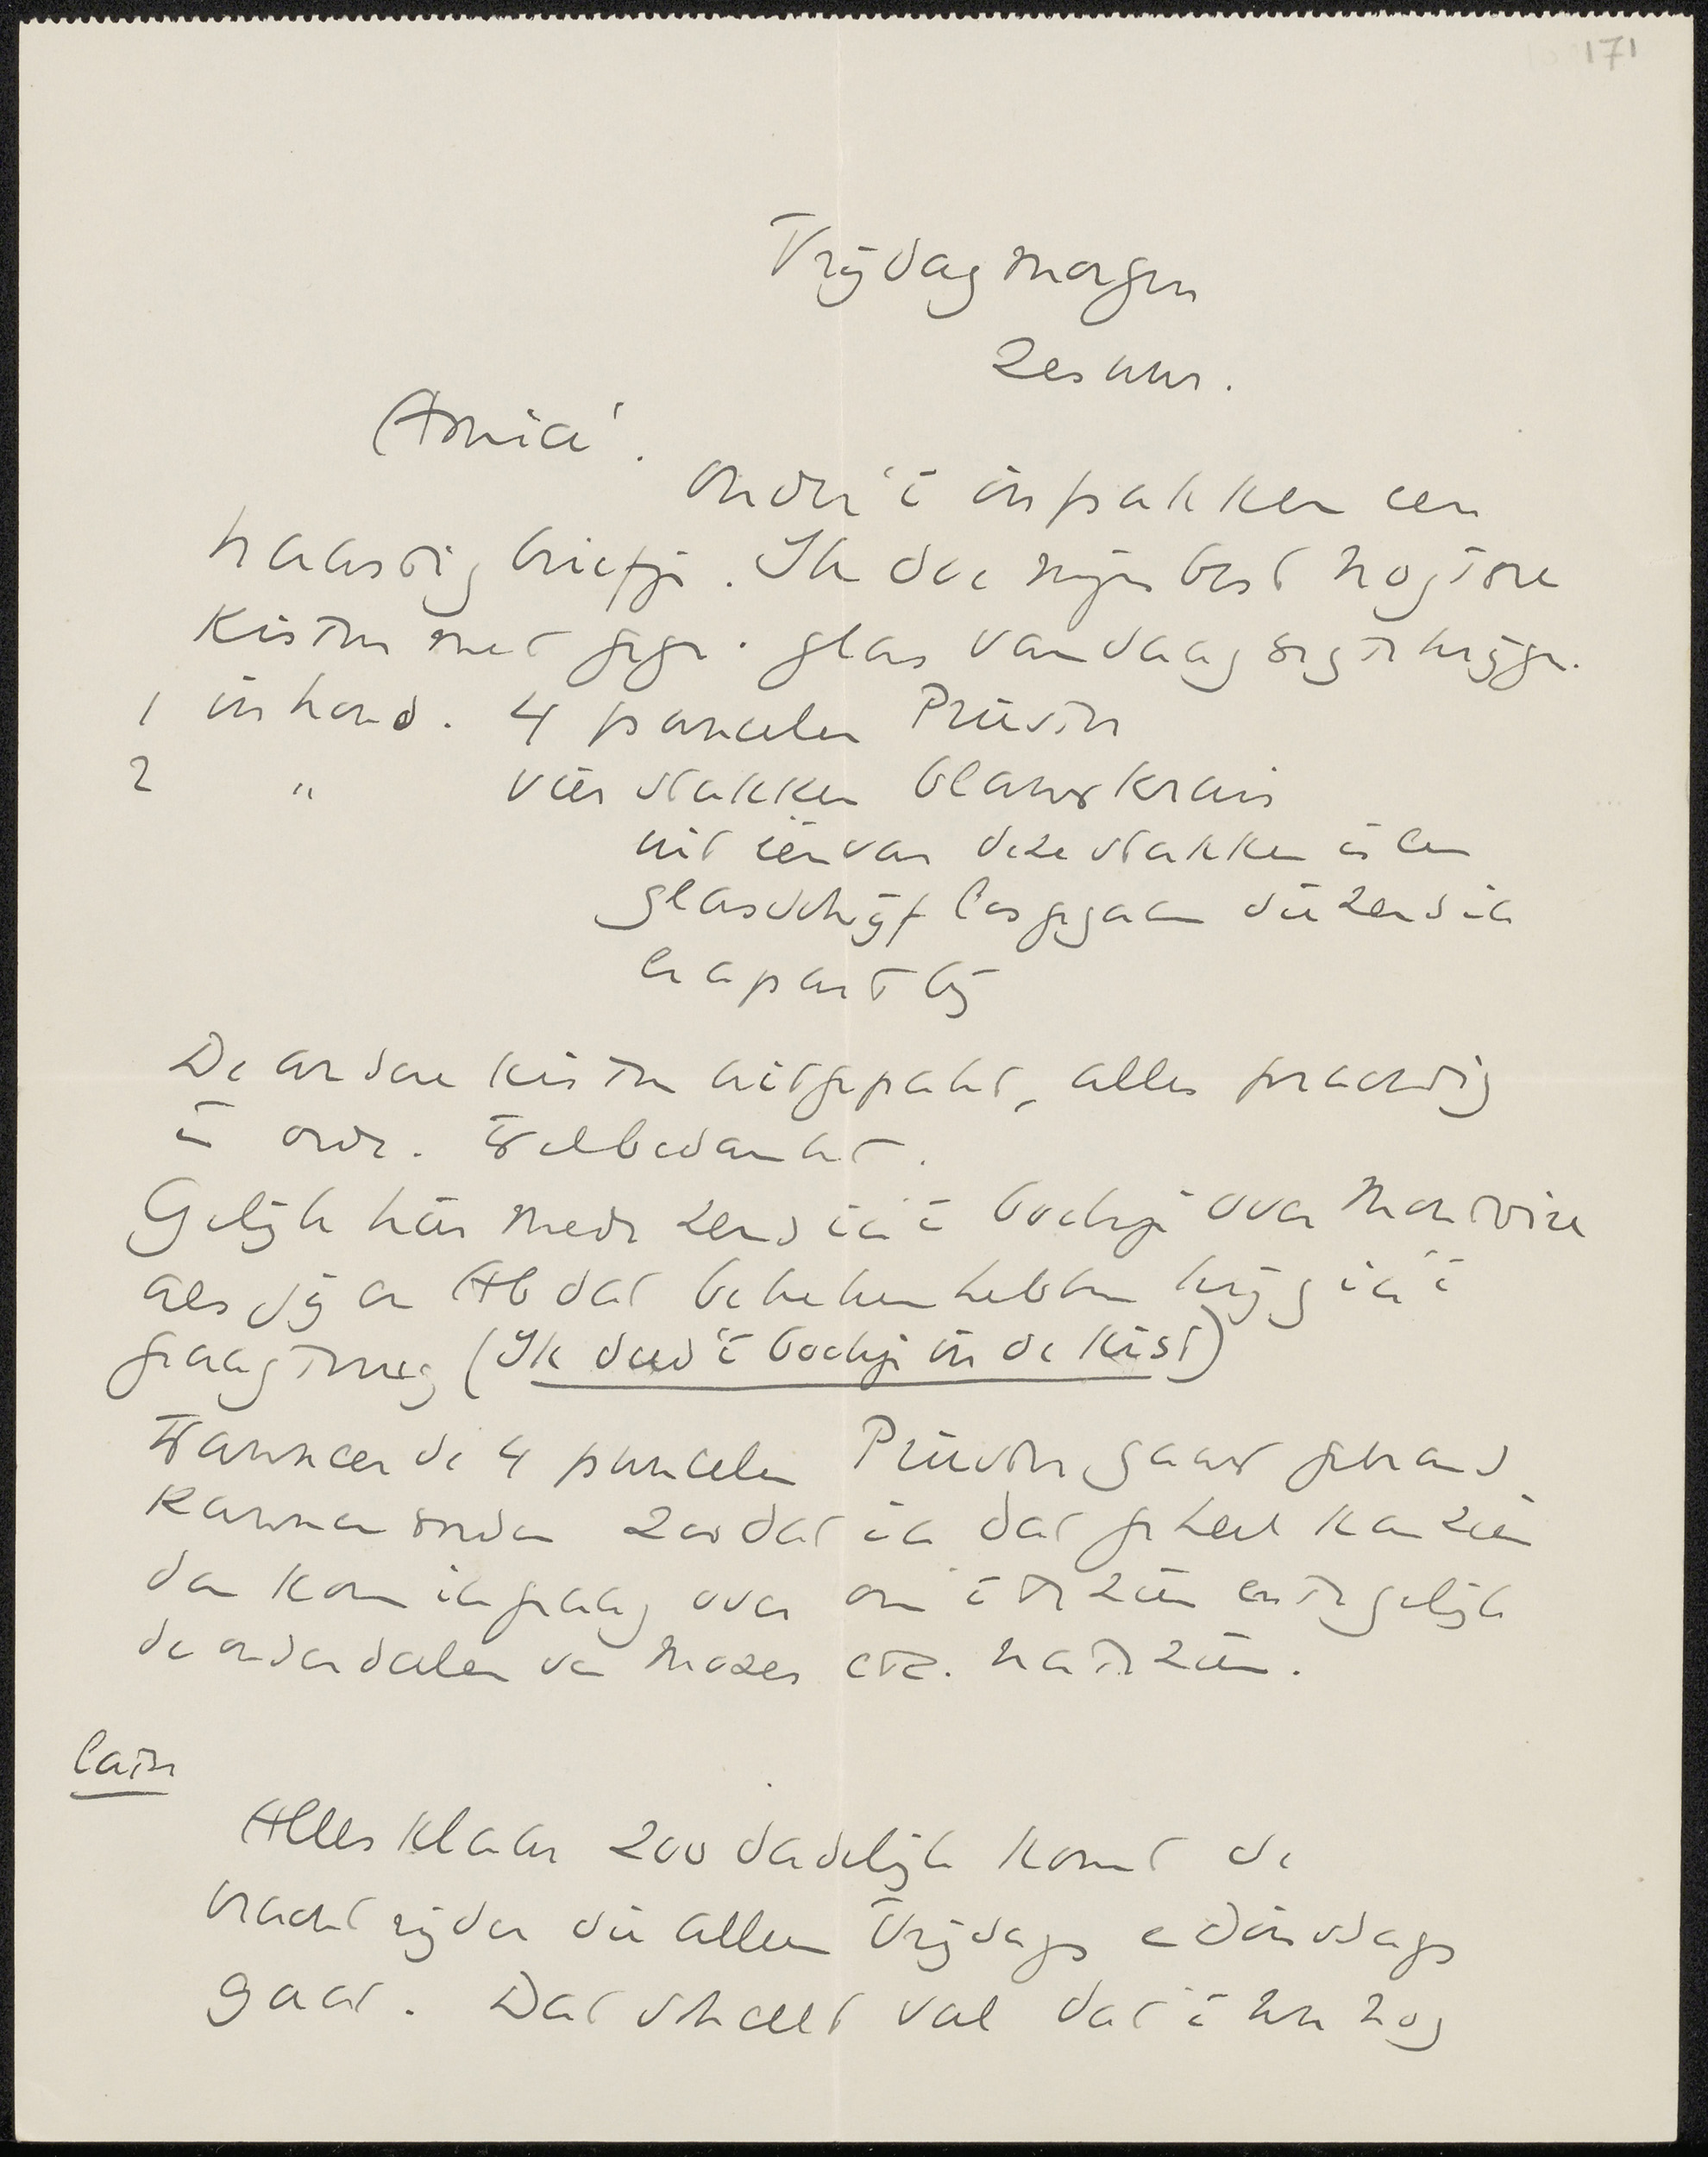 171
Vrijdagmorgen
Zes uur.
Amice'.
Onder 't inpakken een
haastig briefje. Ik doe mijn best nog twee
Kisten met gegr. glas vandaag weg te krijgen.
1 inhoud. 4 panelen Priester
2 " vier vlakken blauw kruis
uit één van deze vlakken is een
glasschijf losgegaan die zend ik
er apart bij
De andere kisten uitgepakt, alles prachtig
in orde. Wel bedankt.
Gelijk hier mede zend ik 't boekje over
als jij en Ab dat bekeken hebben krijg ik 't
graag terug (Ik deed 't boekje in de kist)
Wanneer de 4 panelen Priester gaar gebrand
kunnen worden zoodat ik dat geheel kan zien
dan kom ik graag over om 't te zien en tegelijk
de onderdeelen van Mozes etc. na te zien.
later
Alles klaar zoo dadelijk komt de
vrachtrijder die alleen Vrijdags en Dinsdags
gaat. Dat scheelt veel dat 't nu nog